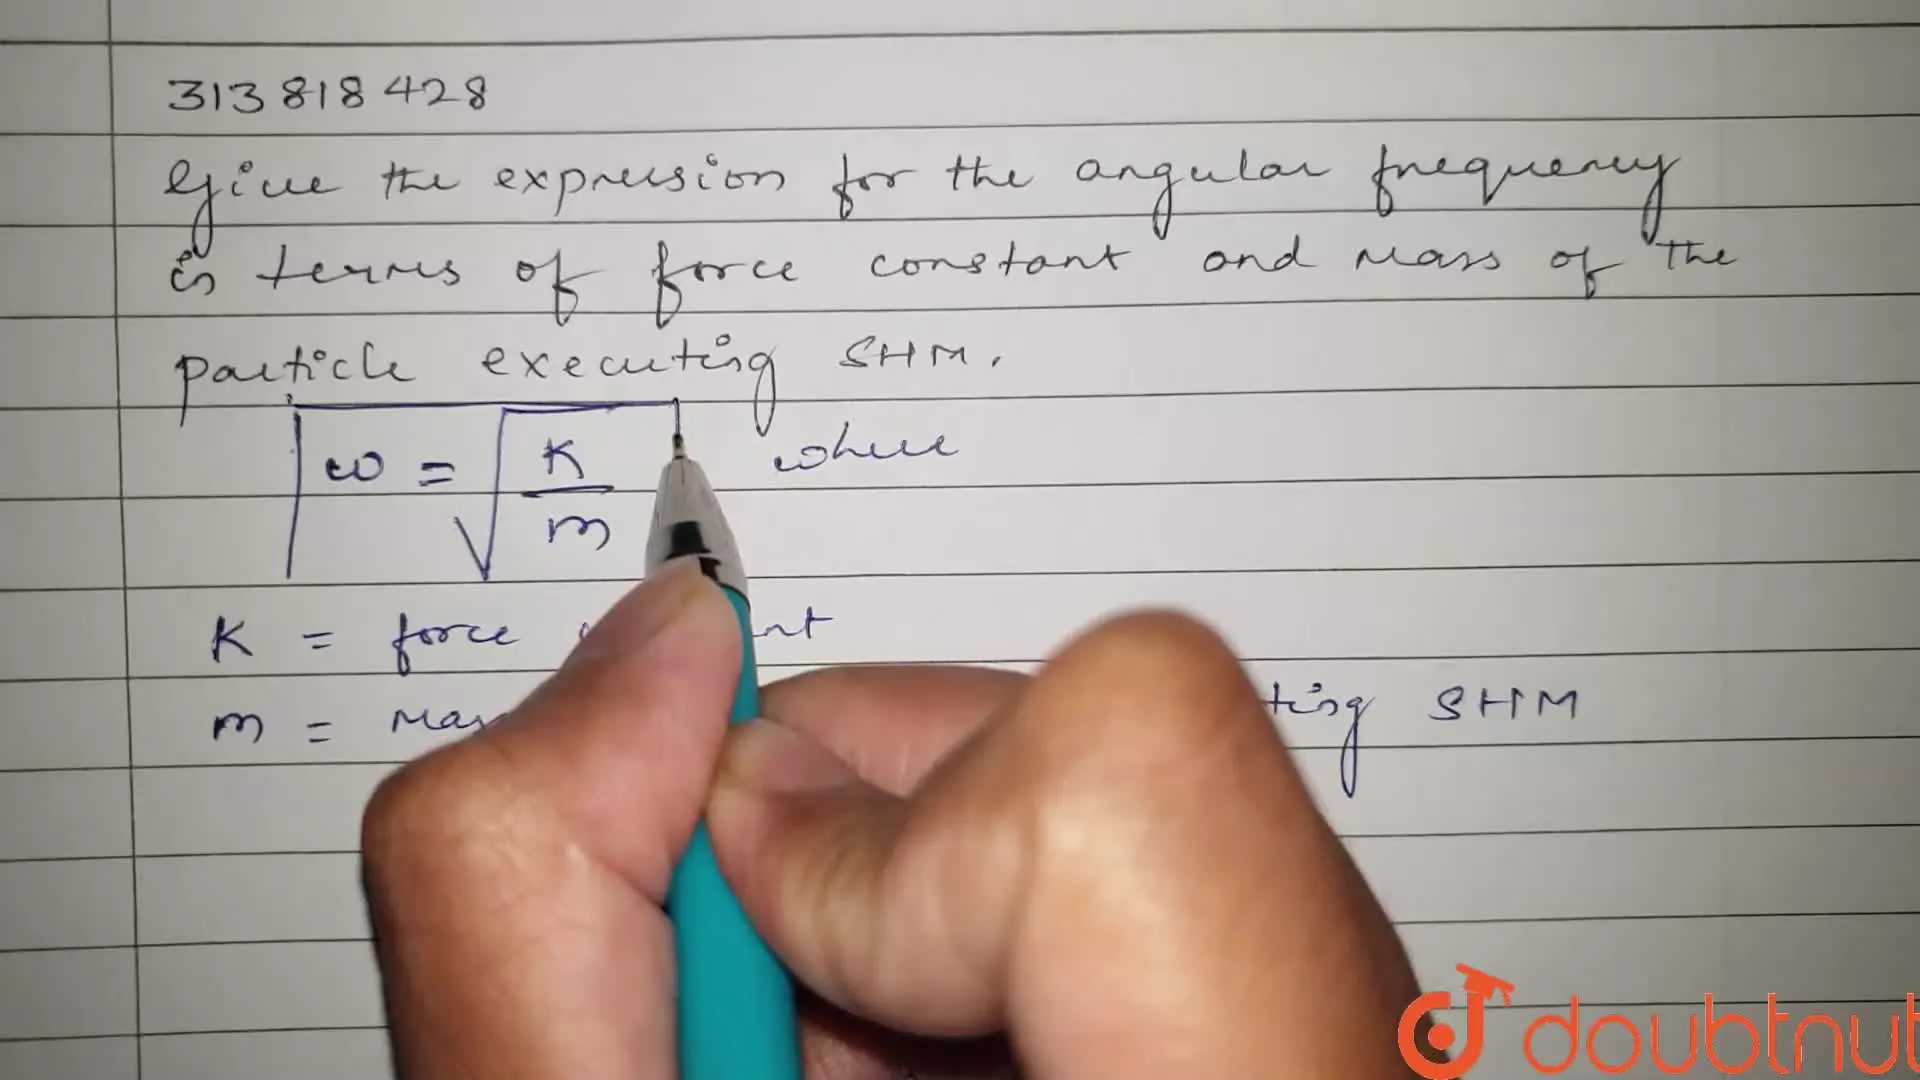 313818428
Give the expression for the angular frequency
in terms of force constant and mass of the
particle executing SHM.
ω = √K/m where
K = force
m = SHM
doubtnut